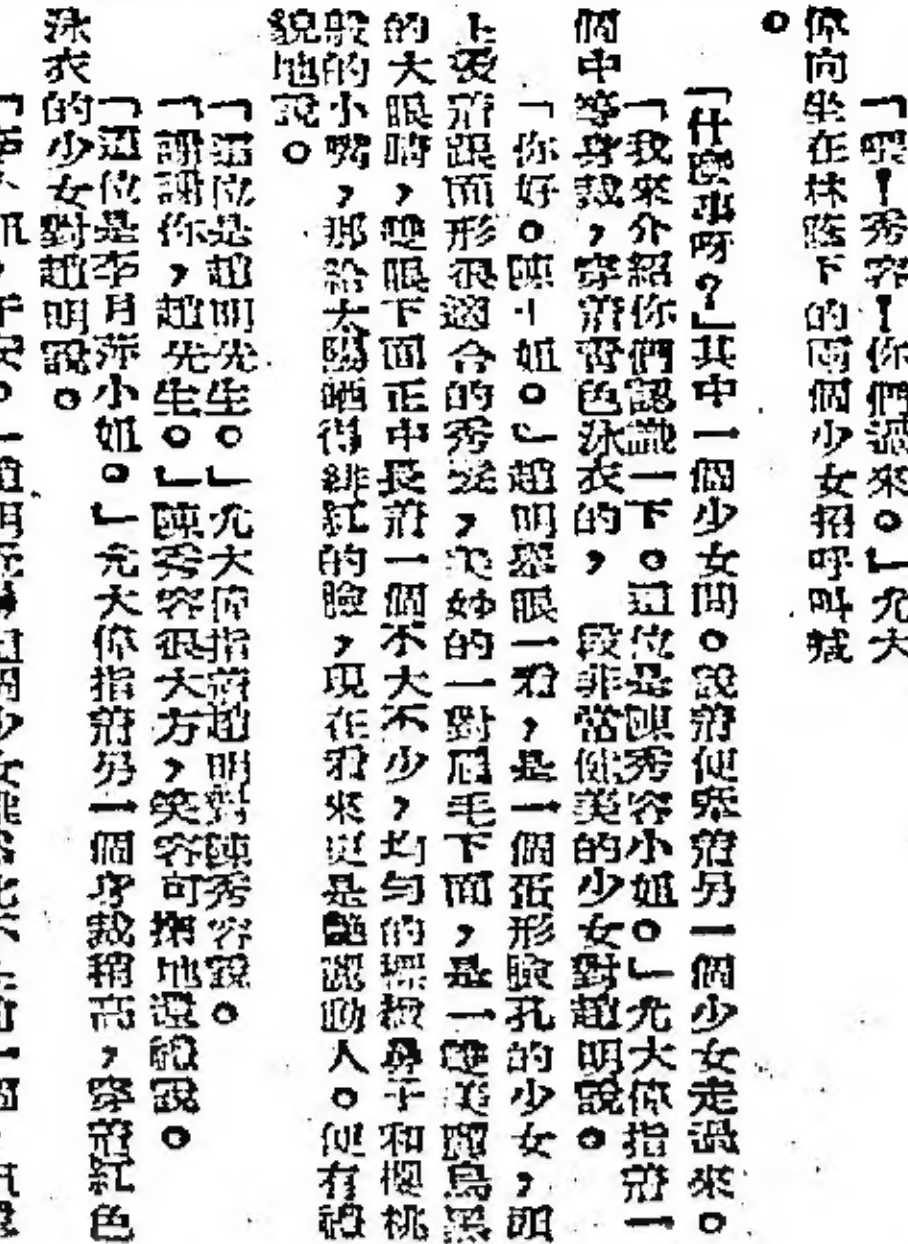 「喂！秀容！你們過來。」尤大
偉向坐在林蔭下的兩個少女招呼叫喊
。
「什麽事呀？」其中一個少女問。說着便牽着另一個少女走過來。
「我來介紹你們認識一下。這位是陳秀容小姐。」尤大偉指着一
個中等身裁，穿着藍色泳衣的，段非常健美的少女對趙明說。
「你好。陳小姐。」趙明舉眼一看，是一個蛋形臉孔的少女，頭
上受着跟面形很適合的秀髮，美妙的一對眉毛下面，是一雙美麗烏黑
的大眼睛，雙眼下面正中長着一個不大不少，均勻的鼻子和櫻桃
般的小嘴，那給太陽晒得緋紅的臉，現在看來更是艷麗動人。便有禮
貌地說。
「這位是趙明先生。」尤大偉指着趙明對陳秀容說。
「謝謝你，趙先生。」陳秀容很大方，笑容可掬地還禮說。
「這位是李月萍小姐。」尤大偉指着另一個身裁稍高，穿着紅色
泳衣的少女對趙明說。